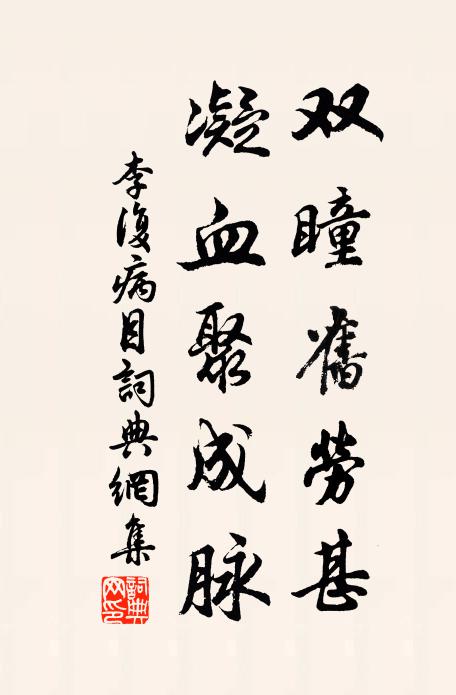 双瞳舊勞甚
凝血聚成脉
李復病目詞典網集